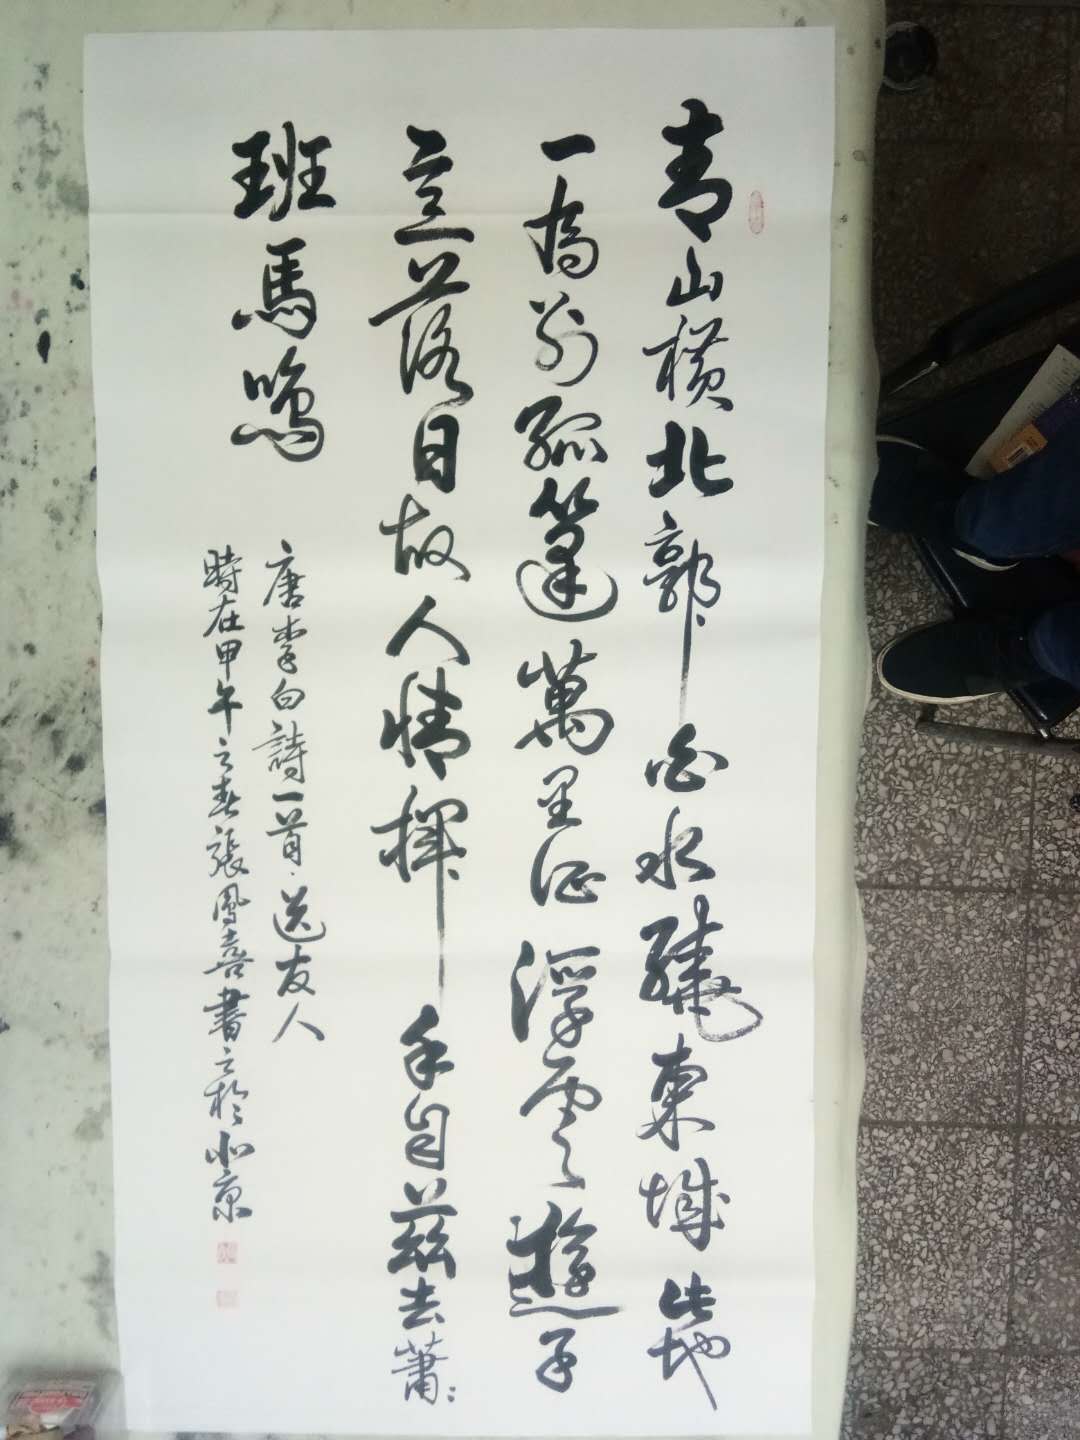 青山横北郭白水繞東城此地
一為別孤篷萬里征浮雲遊子
意落日故人情揮手自茲去蕭〻
班馬鳴
唐李白詩一首送友人
時在甲午之春張鳳喜書之於北京